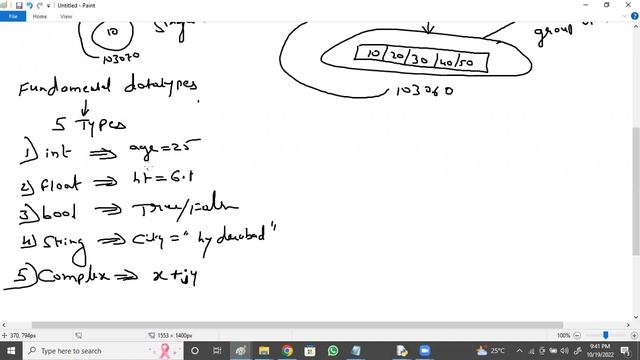 Untitled - Paint
File
Home
View
10
103070
group of
10/20/30/40/50
103060
Fundamental datatypes
5 Types
1) int ⇒ age=25
2) Float ⇒ ht=6.1
3) bool ⇒ True/False
4) String ⇒ City="hyderabad"
5) Complex ⇒ x+jy
370, 794px
1553 × 1400px
100%
Type here to search
25°C
9:41 PM
10/19/2022